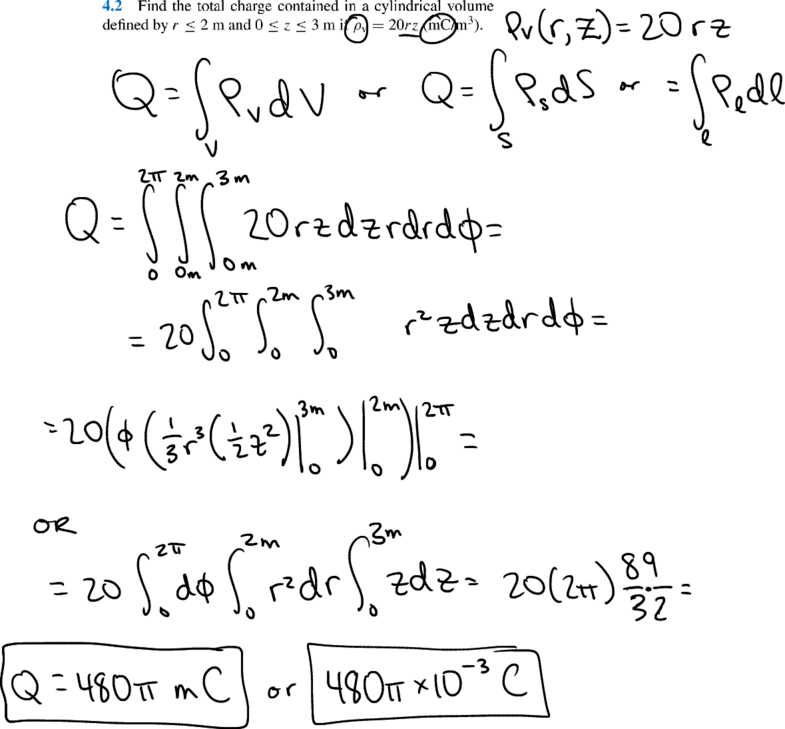 4.2 Find the total charge contained in a cylindrical volume
defined by r ≤ 2 m and 0 ≤ z ≤ 3 m if ρv = 20rz (mC/m³). ρv(r,z) = 20rz
Q = ∫v ρv dV or Q = ∫s ρs dS or = ∫ℓ ρℓ dℓ
Q = ∫₀^2π ∫0m^2m ∫0m^3m 20rzdzrdrdϕ =
= 20 ∫₀^2π ∫₀^2m ∫₀^3m r²zdzdrdϕ =
= 20(ϕ(1/3 r³(1/2 z²)|₀^3m)|₀^2m)|₀^2π =
OR
= 20 ∫₀^2π dϕ ∫₀^2m r²dr ∫₀^3m zdz = 20(2π) 8/3 · 9/2 =
Q = 480π mC or 480π ×10⁻³ C